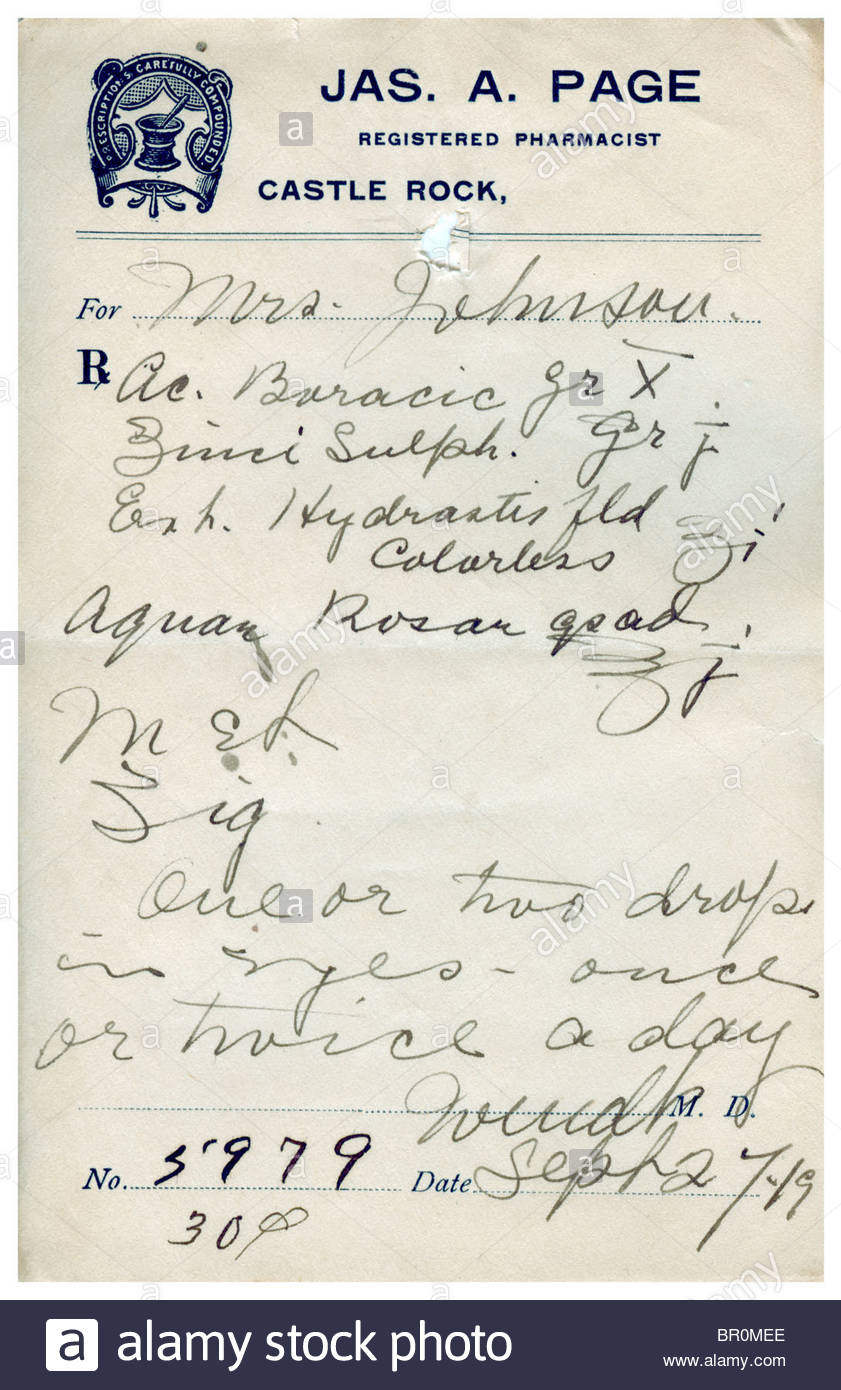 PRESCRIPTIONS CAREFULLY COMPOUNDED
JAS. A. PAGE
REGISTERED PHARMACIST
CASTLE ROCK,
For Mrs. Johnson.
℞ Ac. Boracic Gr X
Zinci Sulph. Gr j
Ext. Hydrastis fld
Colorless ʒi
Aquae Rosae qs ad
℥j
M et
Sig
One or two drops
in eyes - once
or twice a day
M. D.
No. 5979 Date Sept 27-19
30¢
a alamy stock photo
BR0MEE
www.alamy.com